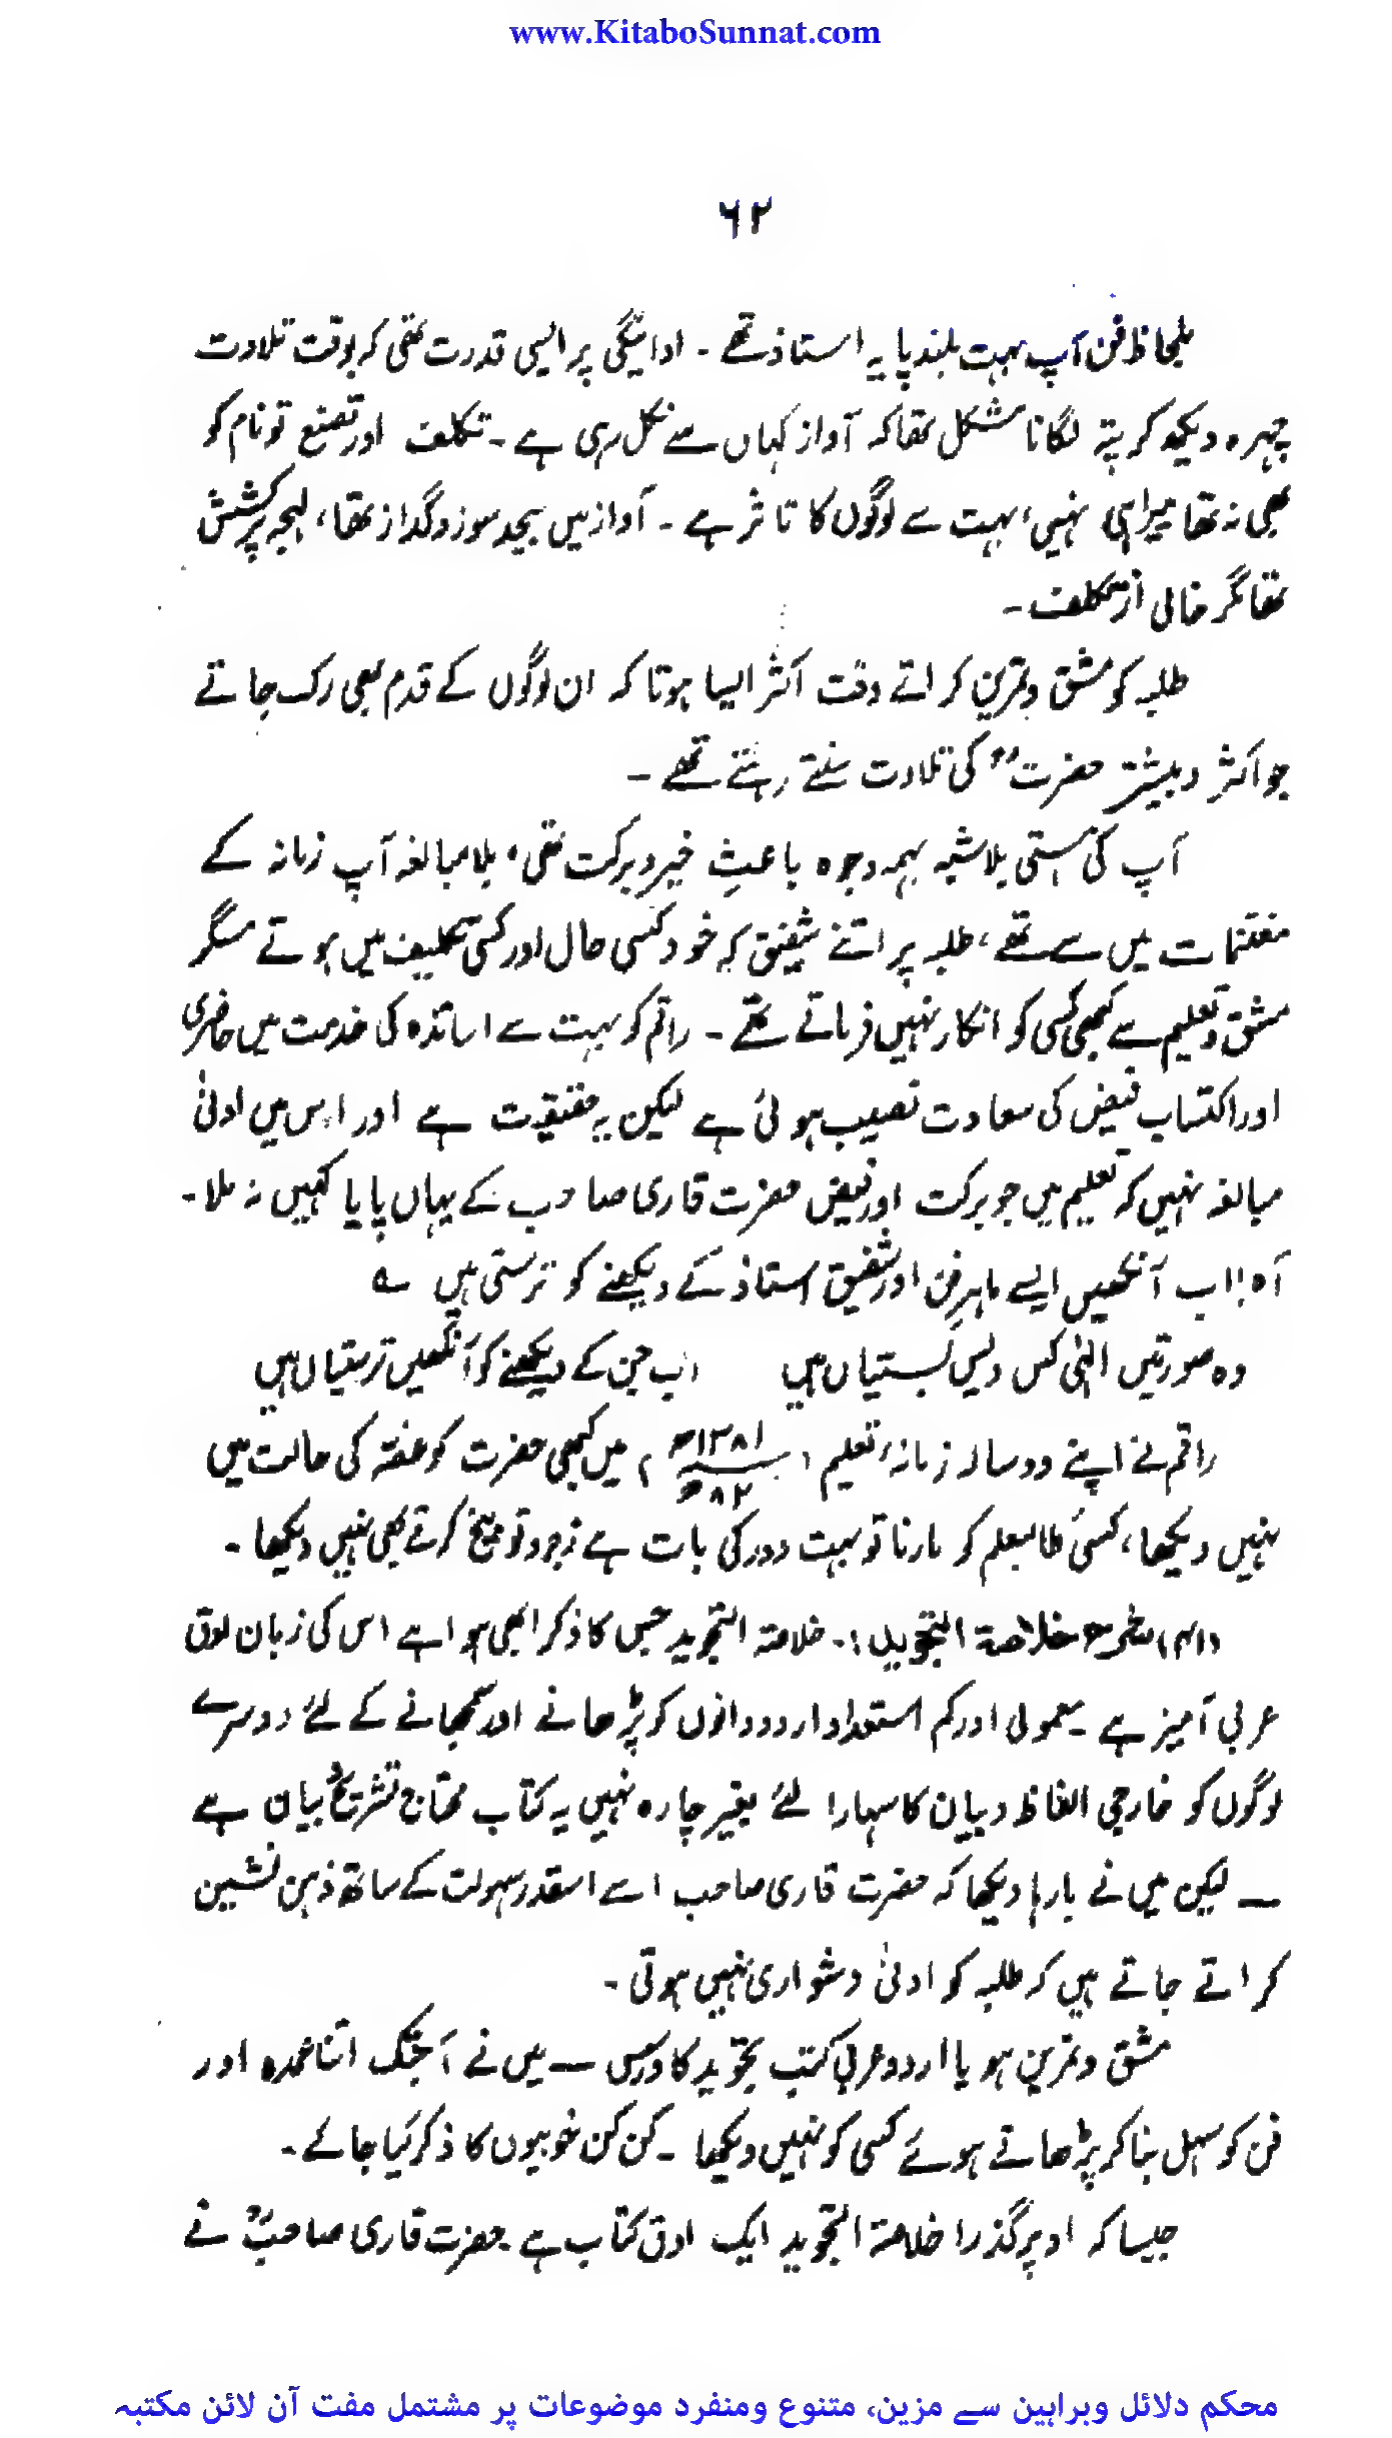 www.KitaboSunnat.com
۶۲
بلحاظ فن آپ بہت بلند پایہ استاذ تھے ۔ ادائیگی پر ایسی قدرت تھی کہ بوقت تلاوت
چہرہ دیکھ کر پتہ لگانا مشکل تھا کہ آواز کہاں سے نکل رہی ہے ۔ تکلف اور تصنع تو نام کو
بھی نہ تھا میرا ہی نہیں، بہت سے لوگوں کا تاثر ہے ۔ آواز میں بیحد سوز و گداز تھا، لہجہ پرکشش
تھا مگر خالی از تکلف ۔
طلبہ کو مشق و تمرین کراتے وقت اکثر ایسا ہوتا کہ ان لوگوں کے قدم بھی رک جاتے
جو اکثر و بیشتر حضرتؒ کی تلاوت سنتے رہتے تھے ۔
آپ کی ہستی بلاشبہ ہمہ وجوہ باعثِ خیر و برکت تھی، بلا مبالغہ آپ زمانہ کے
مغتنمات میں سے تھے، طلبہ پر اتنے شفیق کہ خود کسی حال اور کسی تکلیف میں ہوتے مگر
مشق و تعلیم سے کبھی کسی کو انکار نہیں فرماتے تھے ۔ راقم کو بہت سے اساتذہ کی خدمت میں حاضری
اور اکتساب فیض کی سعادت نصیب ہوئی ہے لیکن یہ حقیقت ہے اور اس میں ادنیٰ
مبالغہ نہیں کہ تعلیم میں جو برکت اور فیض حضرت قاری صاحب کے یہاں پایا کہیں نہ ملا ۔
آہ! اب آنکھیں ایسے ماہرِ فن اور شفیق استاذ کے دیکھنے کو ترستی ہیں ؎
وہ صورتیں الٰہی کس دیس بستیاں ہیں اب جن کے دیکھنے کو آنکھیں ترستیاں ہیں
راقم نے اپنے دو سالہ زمانۂ تعلیم (۱۳۸۱ھ ۸۲ھ) میں کبھی حضرت کو غصہ کی حالت میں
نہیں دیکھا، کسی طالبعلم کو مارنا تو بہت دور کی بات ہے زجر و توبیخ کرتے بھی نہیں دیکھا ۔
(۱م) شرح خلاصۃ التجوید :۔ خلاصۃ التجوید جس کا ذکر ابھی ہوا ہے اس کی زبان ادق
عربی آمیز ہے ۔ معمولی اور کم استعداد اردو دانوں کو پڑھانے اور سمجھانے کے لئے دوسرے
لوگوں کو خارجی الفاظ و بیان کا سہارا لئے بغیر چارہ نہیں یہ کتاب محتاج تشریح و بیان ہے
— لیکن میں نے بارہا دیکھا کہ حضرت قاری صاحب اسے اسقدر سہولت کے ساتھ ذہن نشین
کراتے جاتے ہیں کہ طلبہ کو ادنیٰ دشواری نہیں ہوتی ۔
مشق و تمرین ہو یا اردو عربی کتب تجوید کا درس — میں نے آجتک اتنا عمدہ اور
فن کو سہل بنا کر پڑھاتے ہوئے کسی کو نہیں دیکھا ۔ کن کن خوبیوں کا ذکر کیا جائے ۔
جیسا کہ اوپر گذرا خلاصۃ التجوید ایک ادق کتاب ہے حضرت قاری صاحبؒ نے
محکم دلائل وبراہین سے مزین، متنوع ومنفرد موضوعات پر مشتمل مفت آن لائن مکتبہ